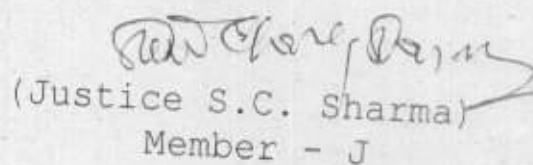 (Justice S.C. Sharma)
Member - J